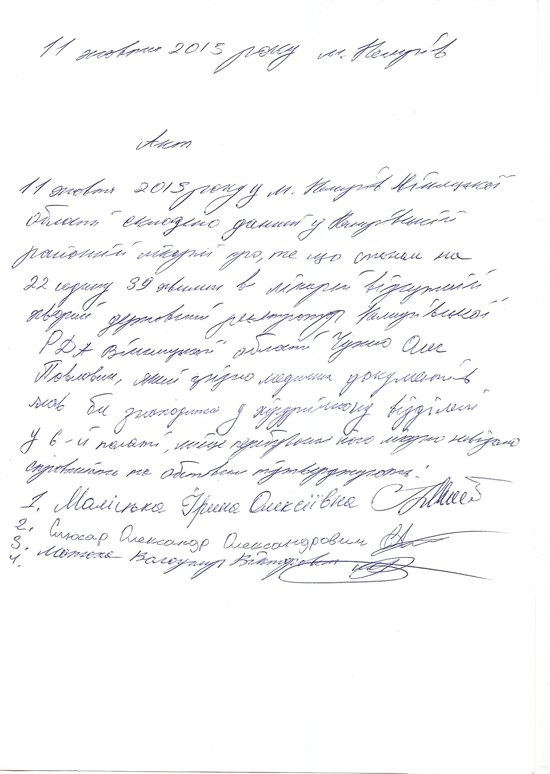 11 жовтня 2013 року м. Немирів
Акт
11 жовтня 2013 року у м. Немирів Вінницької
області складено даний у Немирівській
районній лікарні про, те що станом на
22 годину 39 хвилин в лікарні відсутній
хворий державний реєстратор Немирівської
РДА Вінницької області Олег
Павлович, який згідно медичних документів
мав би знаходитися у хірургічному відділені
у 6-й палаті, місце перебування його медично невідомо
підтверджують!
1. Маліцька Ірина Олексіївна
2. Слюсар Олександр Олександрович
3. Володимир Вікторович
4.